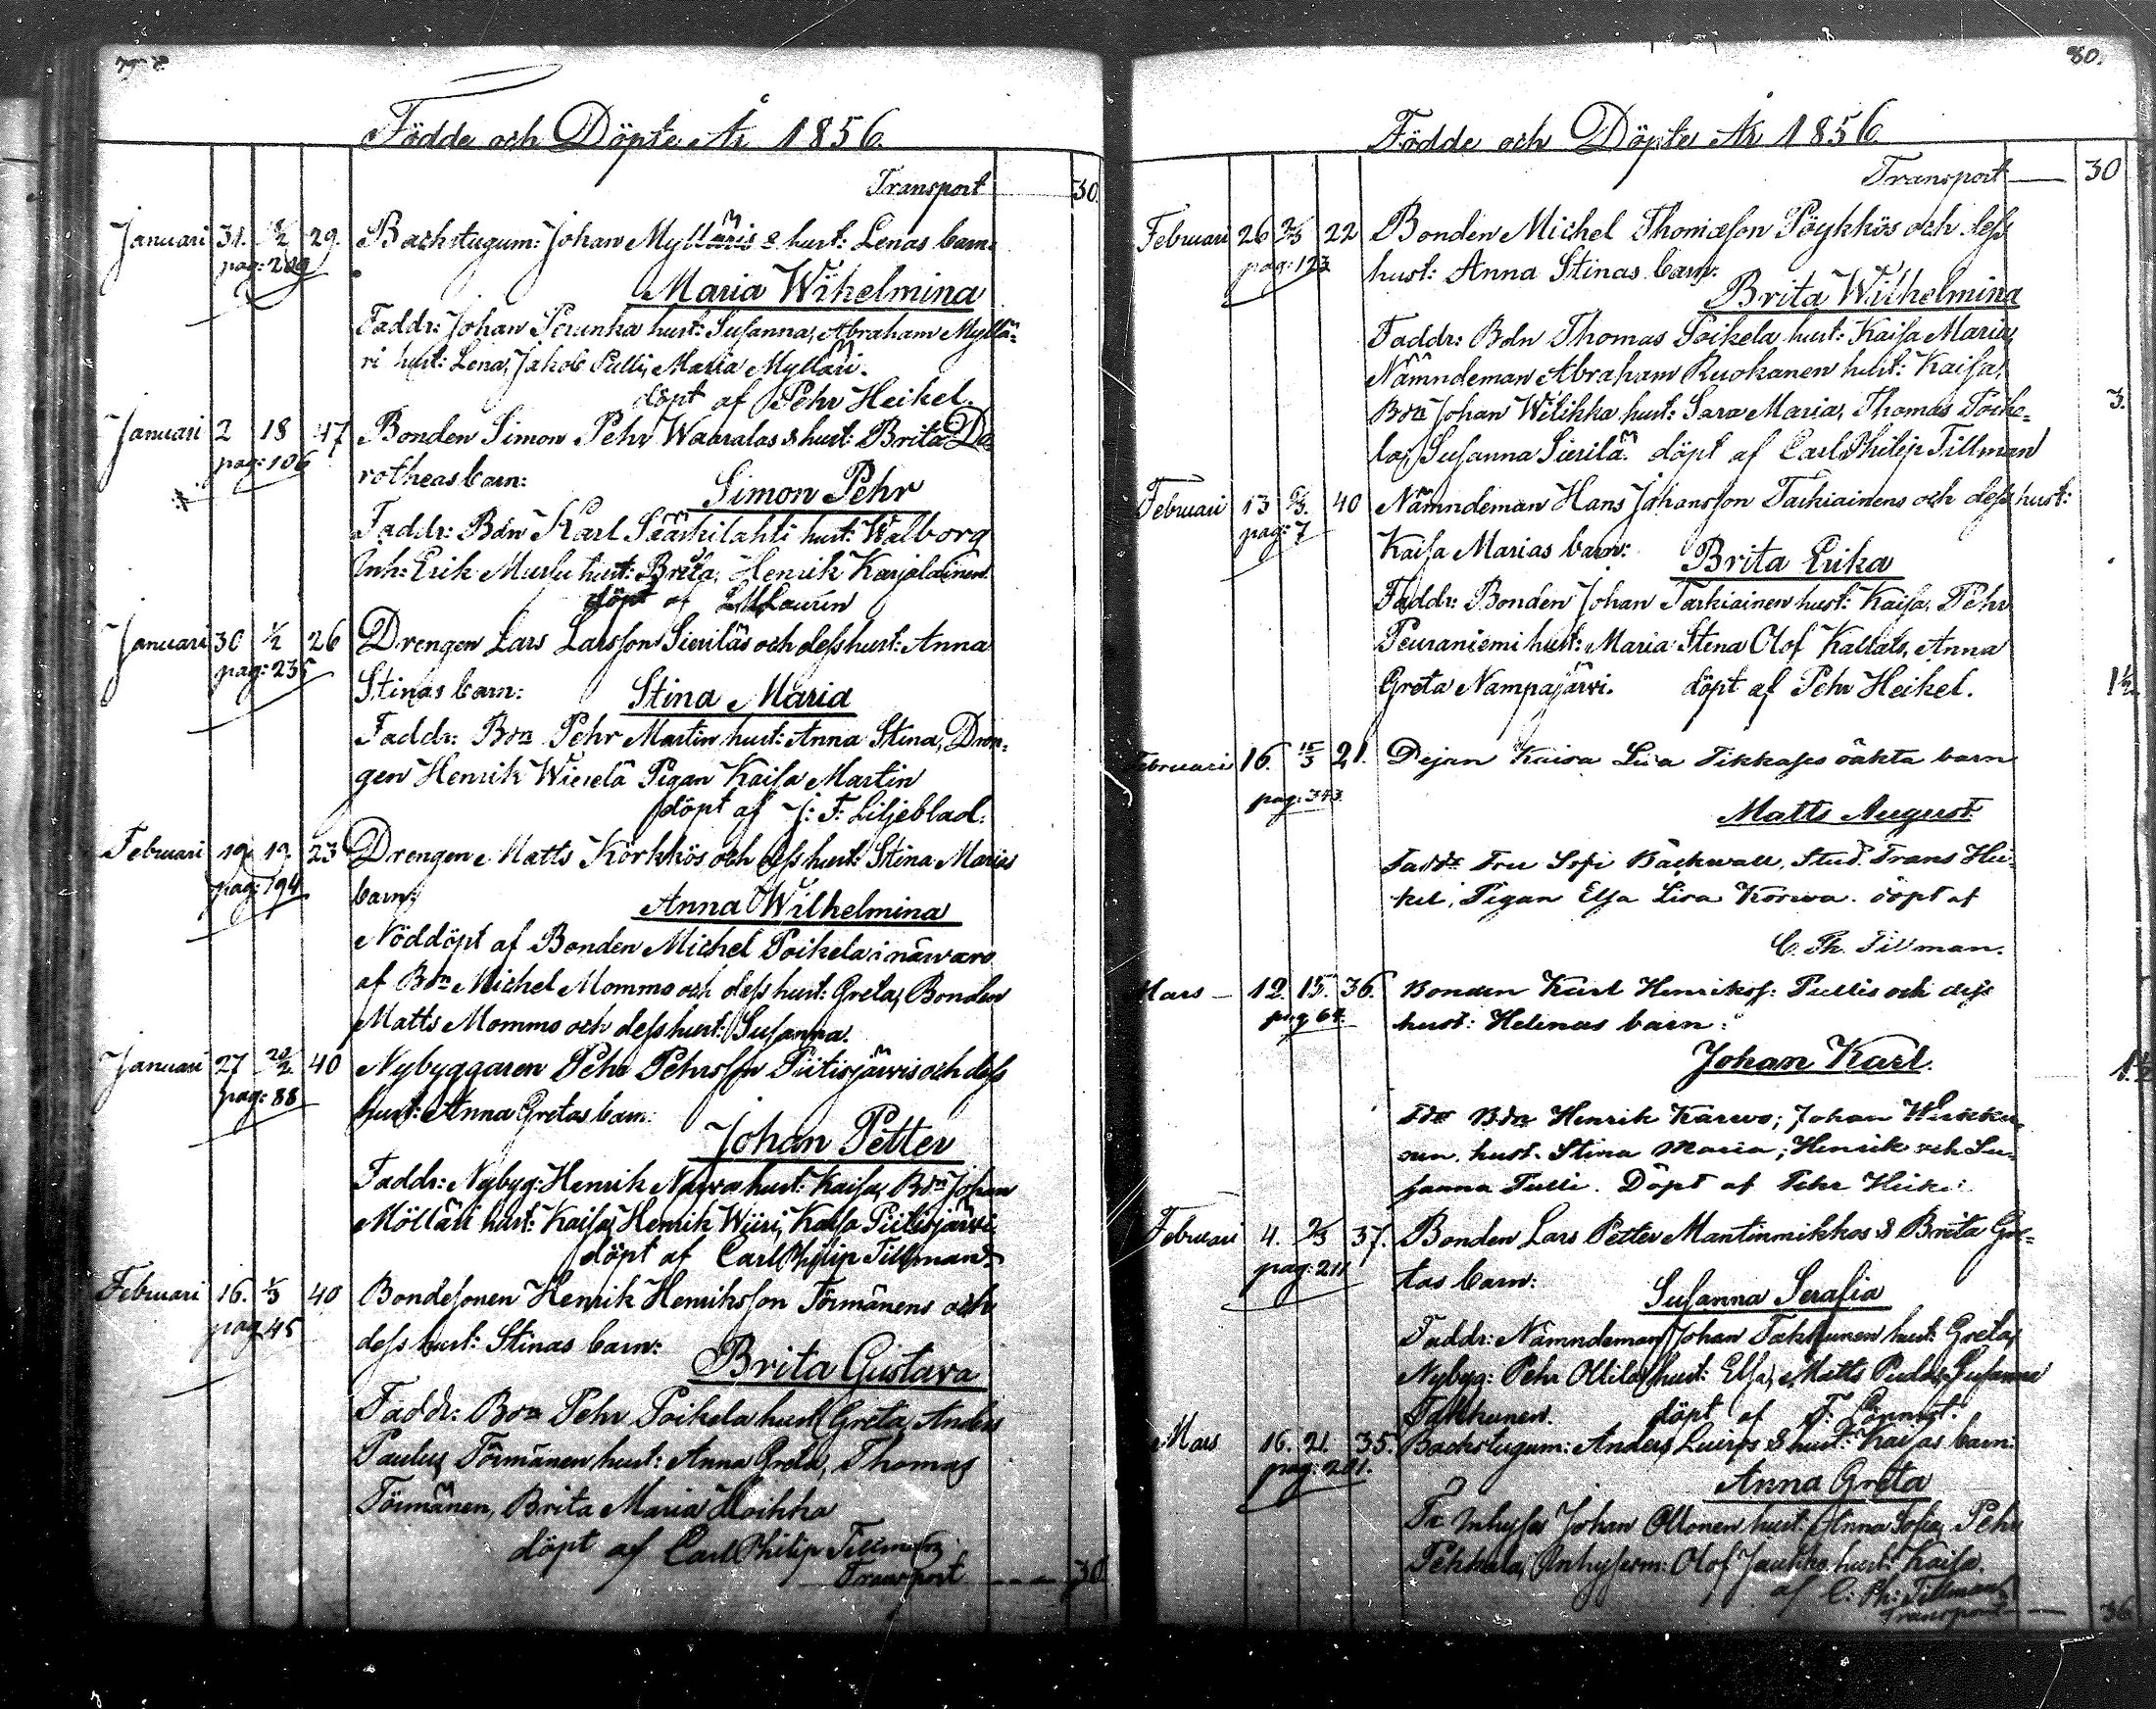 Födde och Döpte År 1856.
Transport 30.
Januari 31. 29. Backstugum: Johan Mylläris & hust: Lenas barn:
pag:
Maria Wilhelmina
Faddr: Johan Perunka hust: Susanna, Abraham Myllä-
ri hust: Lena, Jakob Pulli, Maria Mylläri.
döpt af Pehr Heikel.
Januari 2 18 47 Bonden Simon Pehr Waaralas & hust: Brita Do
pag: 106
rotheas barn:
Simon Pehr
Faddr: Bdn Karl Sääskilahti hust: Walborg
Inh: Erik Mursu hust: Brita, Henrik Karjalainen
döpt af Laurin
Januari 30 1/2 26 Drengen Lars Larsson Sieriläs och dess hust: Anna
pag: 235
Stinas barn: Stina Maria
Faddr: Bdn Pehr Martin hust: Anna Stina, Dren-
gen Henrik Wierelä Pigan Kaisa Martin
döpt af J: F: Liljeblad.
Februari 19 19 23 Drengen Matts Körkkös och dess hust: Stina Marias
pag: 194
barn: Anna Wilhelmina
Nöddöpt af Bonden Michel Poikela i närvaro
af Bdn Michel Mommo och dess hust: Greta, Bonden
Matts Mommo och dess hust: Susanna.
Januari 27 40 Nybyggaren Pehr Pehrsson Piitisjärwis och dess
pag: 88
hust: Anna Gretas barn:
Johan Petter
Faddr: Nybyg: Henrik Narwa hust: Kaisa, Bdn Johan
Mölläri hust: Kaisa, Henrik Wiiri, Kaisa Piitisjärwi
döpt af Carl Philip Tillman
Februari 16. 1/3 40 Bondesonen Henrik Henriksson Törmänens och
pag 45
dess hust: Stinas barn:
Brita Gustava
Faddr: Bdn Pehr Poikela hust: Greta, Anders
Paulus Törmänen hust: Anna Greta, Thomas
Törmänen, Brita Maria Moikka
döpt af Carl Philip Tillman
Transport 30
80.
Födde och Döpte År 1856
Transport 30
Februari 26 2/3 22 Bonden Michel Thomasson Pöykkös och dess
pag: 123
hust: Anna Stinas barn:
Brita Wilhelmina
Faddr: Bdn Thomas Poikela hust: Kaisa Maria,
Nämndeman Abraham Ruokanen hust: Kaisa,
Bdn Johan Wilikka hust: Sara Maria, Thomas Poike- 3.
la, Susanna Sierilä. döpt af Carl Philip Tillman
Februari 13 40 Nämndeman Hans Johansson Tarkiainens och dess hust:
pag: 7
Kaisa Marias barn: Brita Erika
Faddr: Bonden Johan Tarkiainen hust: Kaisa, Pehr
Peuraniemi hust: Maria Stena Olof Kallats, Anna
Greta Nampajärwi. döpt af Pehr Heikel. 1½
Februari 16. 15/3 21. Pejan Kaisa Lisa Tikkases oäkta barn
pag: 343
Matts August
Faddr Fru Sofi Bäckwall, Stud. Frans Hei-
kel, Pigan Elsa Lisa Korwa. döpt af
C. Ph. Tillman.
Mars 12. 15. 36. Bonden Karl Henrikss: Pullis och dess
pag 64
hust: Helenas barn:
Johan Karl.
Fdr Bdn Henrik Karwo; Johan Wirkku-
nen, hust. Stina Maria, Henrik och Su-
sanna Pulli. Döpt af Pehr Heikel
Februari 4. 2/3 37. Bonden Lars Petter Mantinmikkos & Brita Gre-
pag: 211
tas barn:
Susanna Serafia
Faddr: Nämndeman Johan Takkunen hust: Greta,
Nybyg: Pehr Ollila hust: Elsa, Matts Pudas, Susanna
Takkunen. döpt af F. Lönnrot.
Mars 16. 21. 35. Backstugum: Anders & hust: Kaisas barn:
pag: 201.
Anna Greta
Fr Inhyses Johan Ollonen hust: Anna Sofia, Pehr
Pekkala, Inhysesm: Olof Jaukko hust: Kaisa.
af C: Ph: Tillman
Transport 36